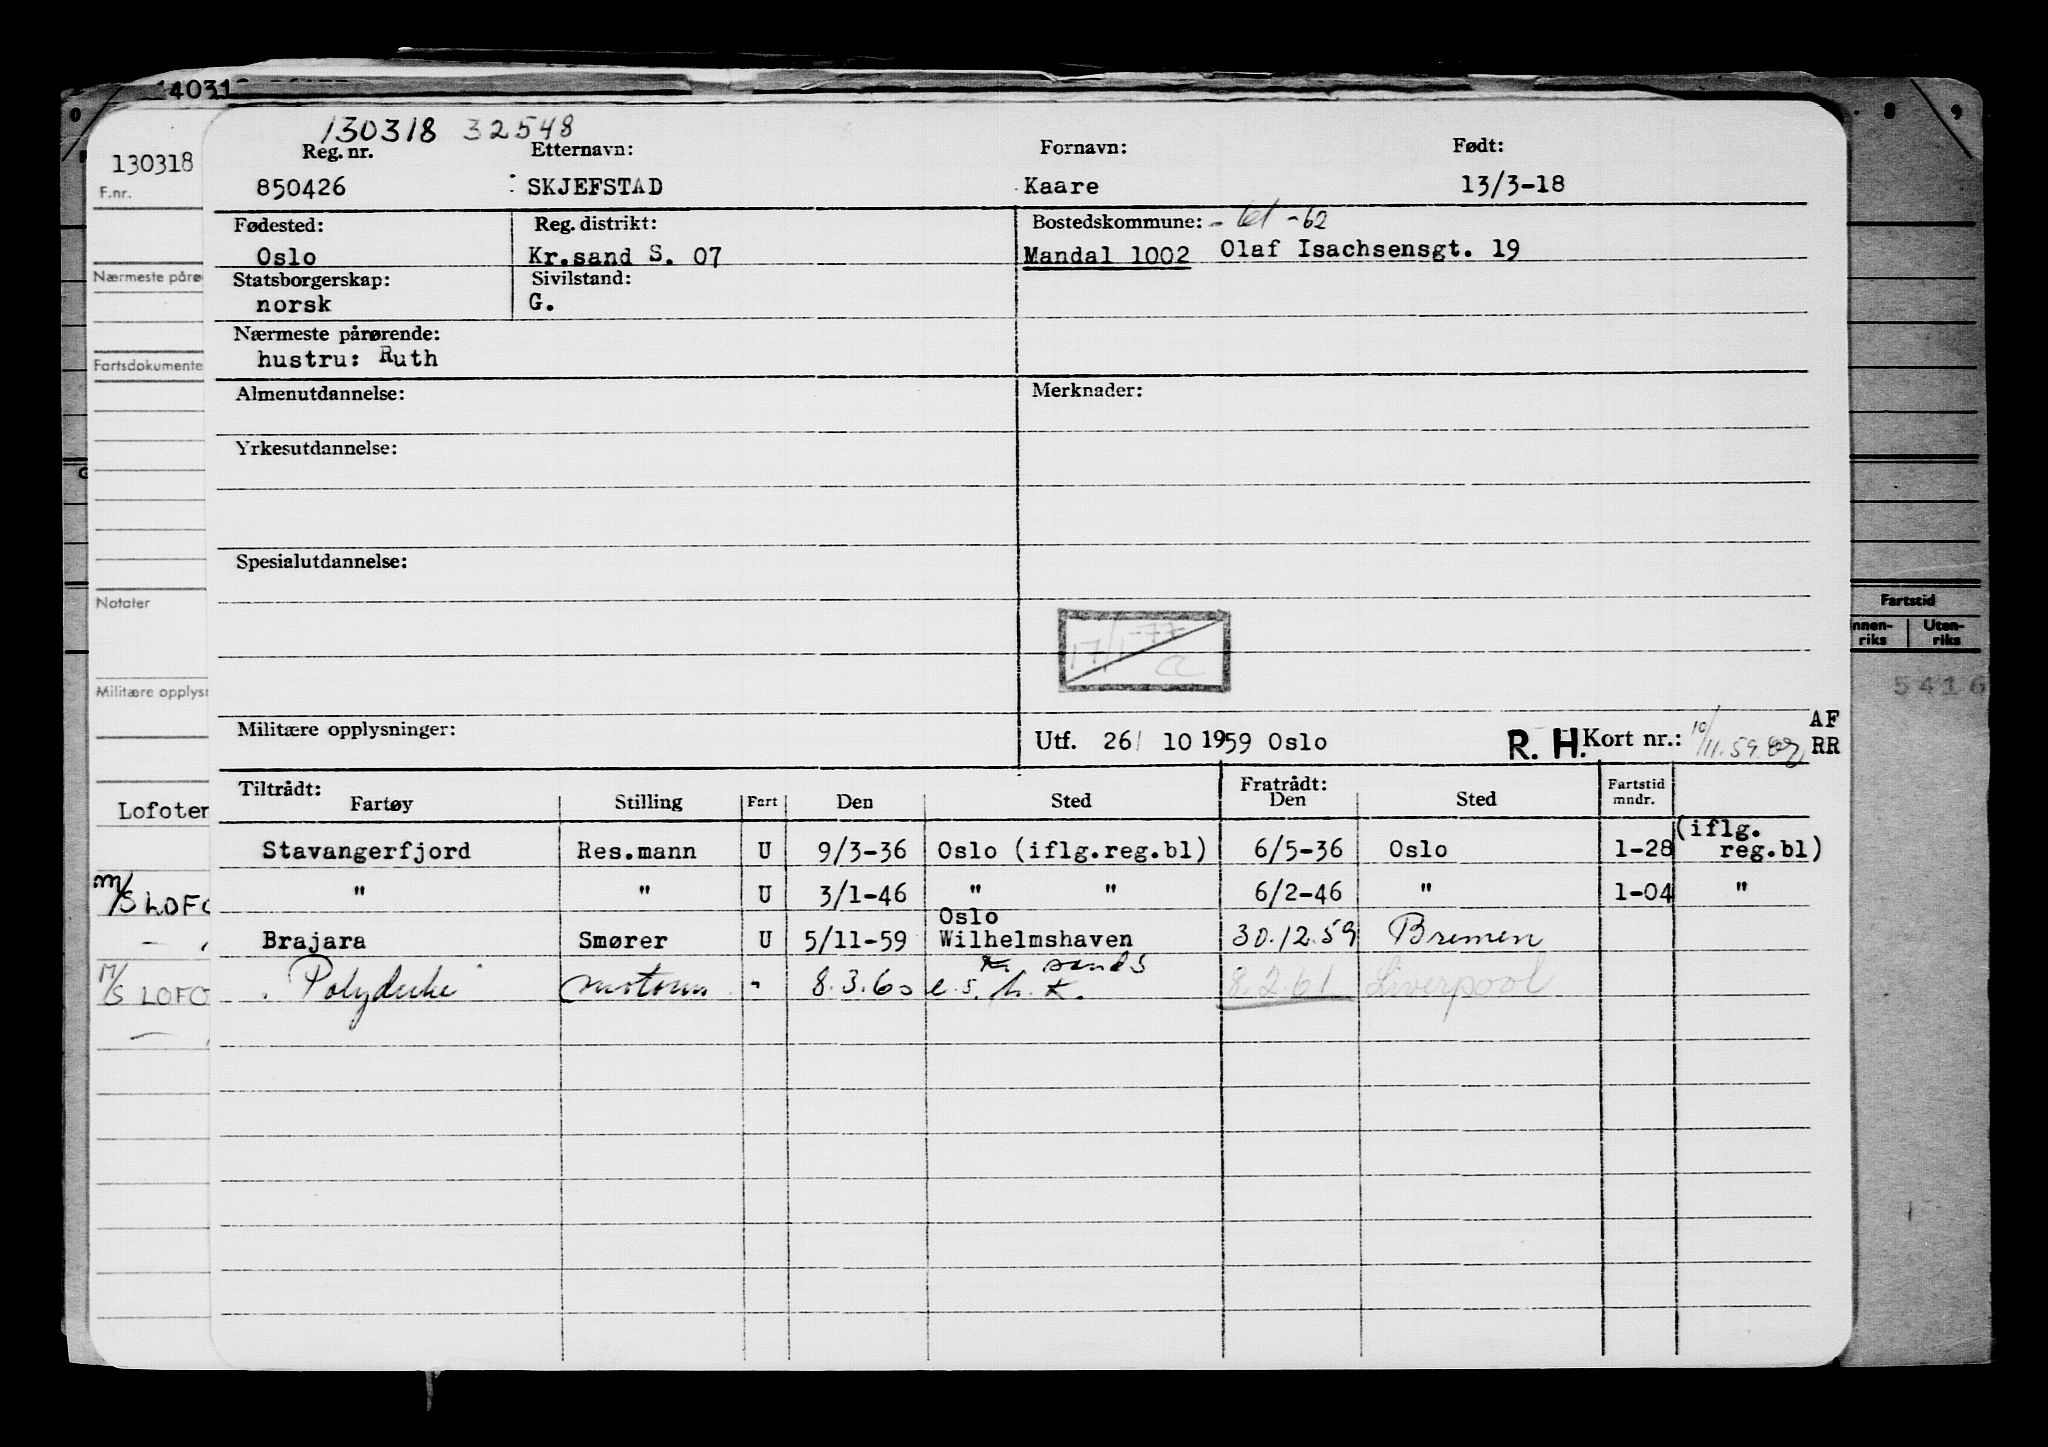 14031
130318 32548
130318
F.nr.
Reg. nr. Etternavn: Fornavn: Født:
850426 SKJEFSTAD Kaare 13/3-18
Fødested: Reg. distrikt: Bostedskommune: - 61 -62
Oslo Kr.sand S. 07 Mandal 1002 Olaf Isachsensgt. 19
Nærmeste pårø
Statsborgerskap: Sivilstand:
norsk G.
Nærmeste pårørende:
hustru: Ruth
Fartsdokumente
Almenutdannelse: Merknader:
Yrkesutdannelse:
Spesialutdannelse:
Notater
Fartstid
Innen-riks Uten-riks
17/1-77
5416
Militære opplysn
Militære opplysninger: Utf. 26/ 10 1959 Oslo R. H. Kort nr.: 10/11.59 AF RR
Tiltrådt: Fratrådt:
Fartøy Stilling Fart Den Sted Den Sted Fartstid mndr.
Lofoten
Stavangerfjord Res.mann U 9/3-36 Oslo (iflg.reg.bl) 6/5-36 Oslo 1-28 (iflg. reg.bl)
M/S LOFO
" " U 3/1-46 " " 6/2-46 " 1-04 "
Brajara Smører U 5/11-59 Oslo Wilhelmshaven 30.12.59 Bremen
M/S LOFO
8.3.60 8.2.61 Liverpool